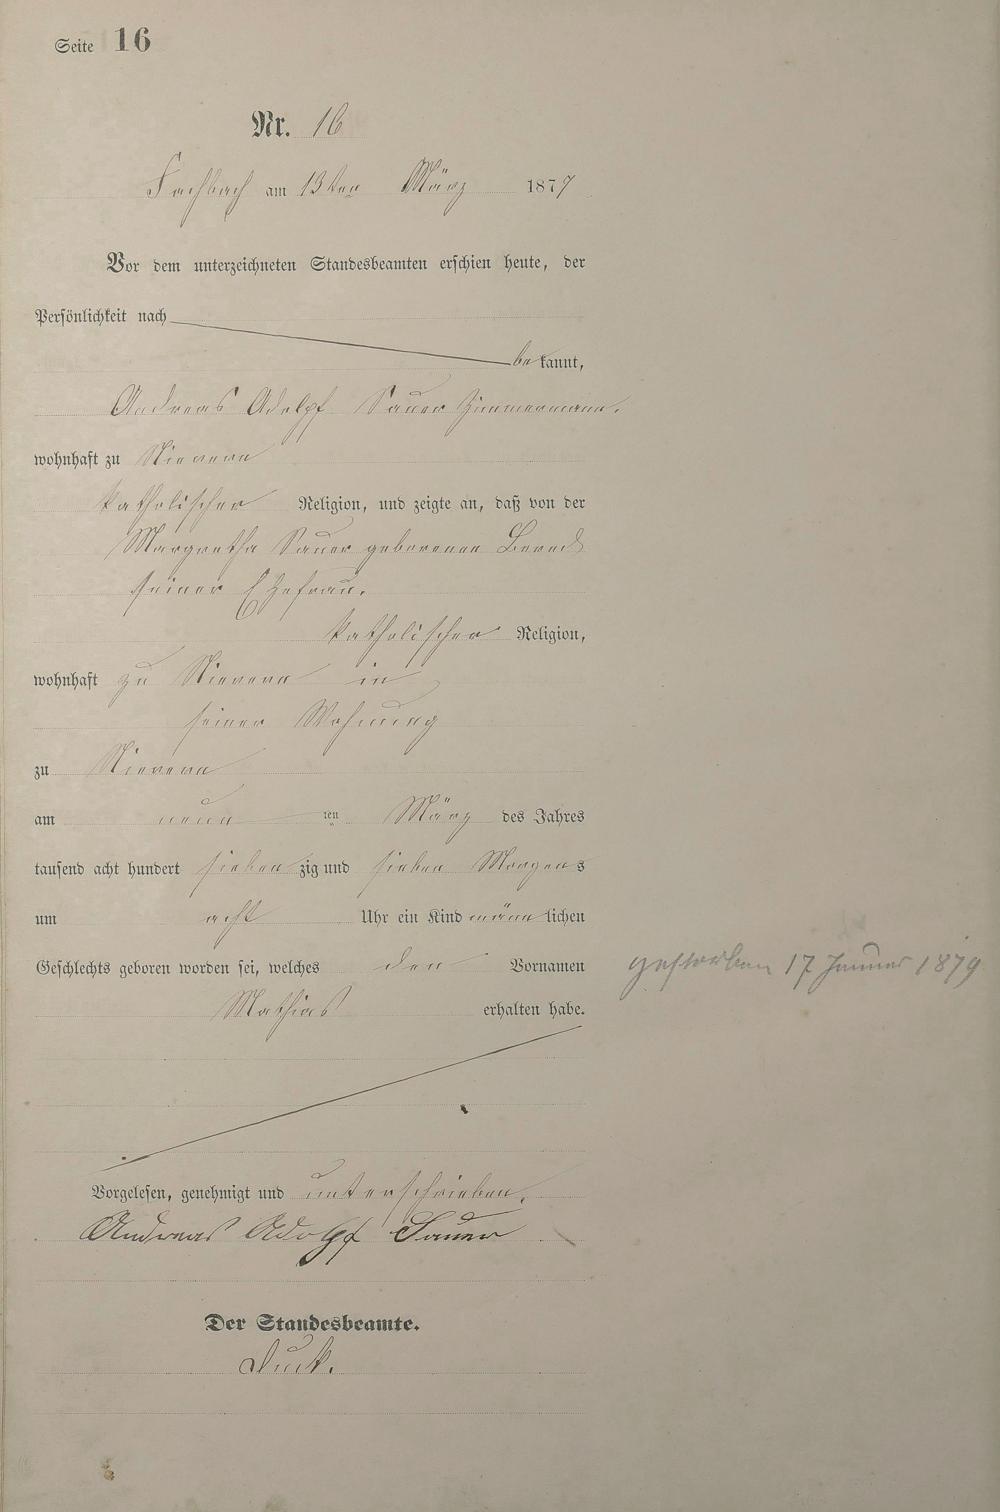 Seite 16
Nr. 16
Fachbach am 13ten März 1877
Vor dem unterzeichneten Standesbeamten erschien heute, der
Persönlichkeit nach
bekannt,
Andreas Adolph Sauer Zimmermann,
wohnhaft zu Nievern
katholischer Religion, und zeigte an, daß von der
Margretha Sauer geborenen
seiner Ehefrau,
katholischer Religion,
wohnhaft zu Nievern in
seiner Wohnung
zu Nievern
am neun ten März des Jahres
tausend acht hundert siebenzig und sieben Morgens
um acht Uhr ein Kind männlichen
Geschlechts geboren worden sei, welches den Vornamen
gestorben 17 Januar 1879
Mathias erhalten habe.
Vorgelesen, genehmigt und unterschrieben.
Andreas Adolph Sauer
Der Standesbeamte.